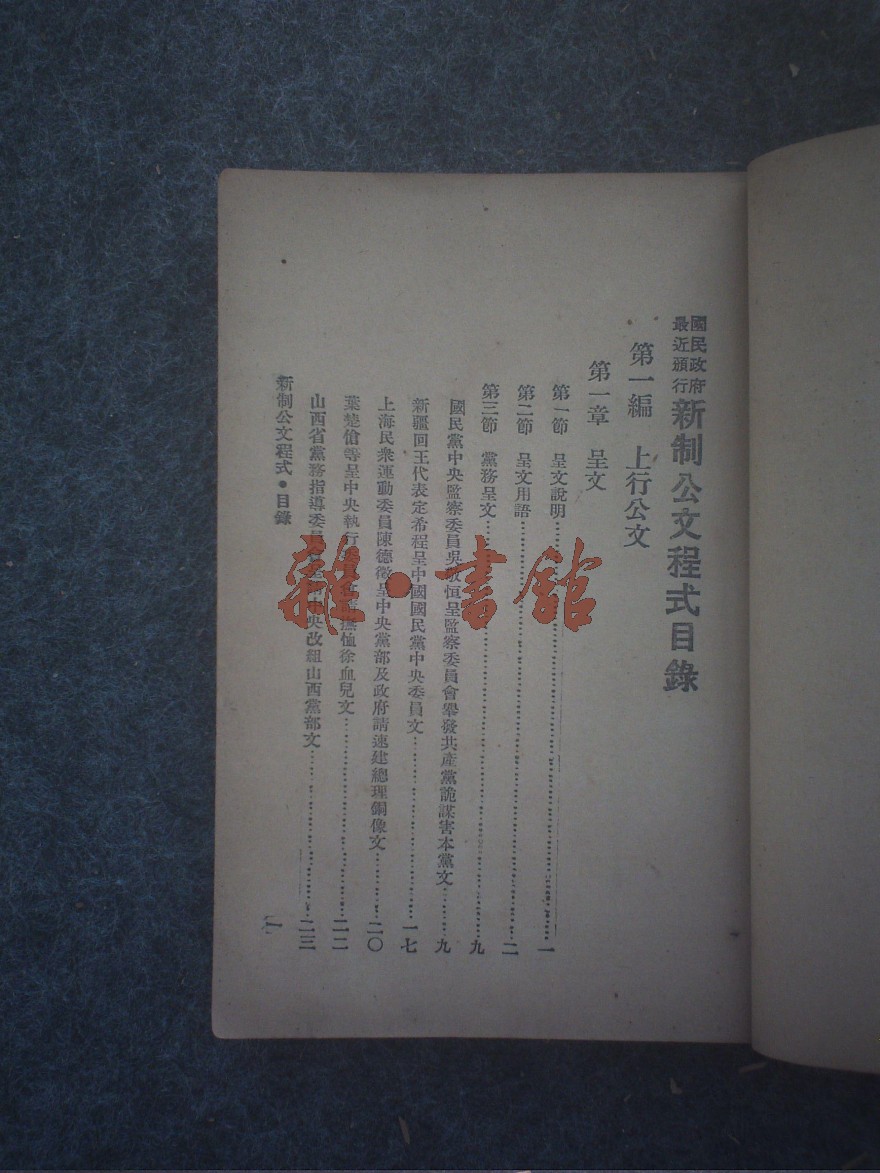 國民政府
最近頒行
新制公文程式目錄
第一編 上行公文
第一章 呈文
第一節 呈文說明…………一
第二節 呈文用語…………二
第三節 黨務呈文…………九
國民黨中央監察委員吳敬恒呈監察委員會舉發共產黨詭謀害本黨文…………九
新疆回王代表定希程呈中國國民黨中央委員文…………一七
上海民衆運動委員陳德徵呈中央黨部及政府請速建總理銅像文…………二〇
葉楚傖等呈中央執行撫恤徐血兒文…………二二
山西省黨務指導委員中央改組山西黨部文…………二三
新制公文程式•目錄
一
雜•書館